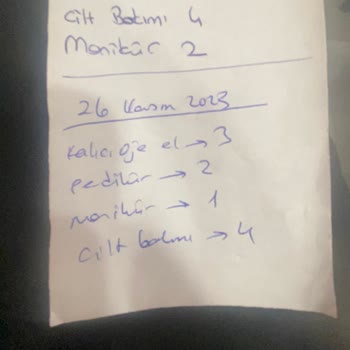 Cilt Bakımı 4
Manikür 2
26 Kasım 2023
Kalıcı oje el → 3
pedikür → 2
manikür → 1
cilt bakımı → 4